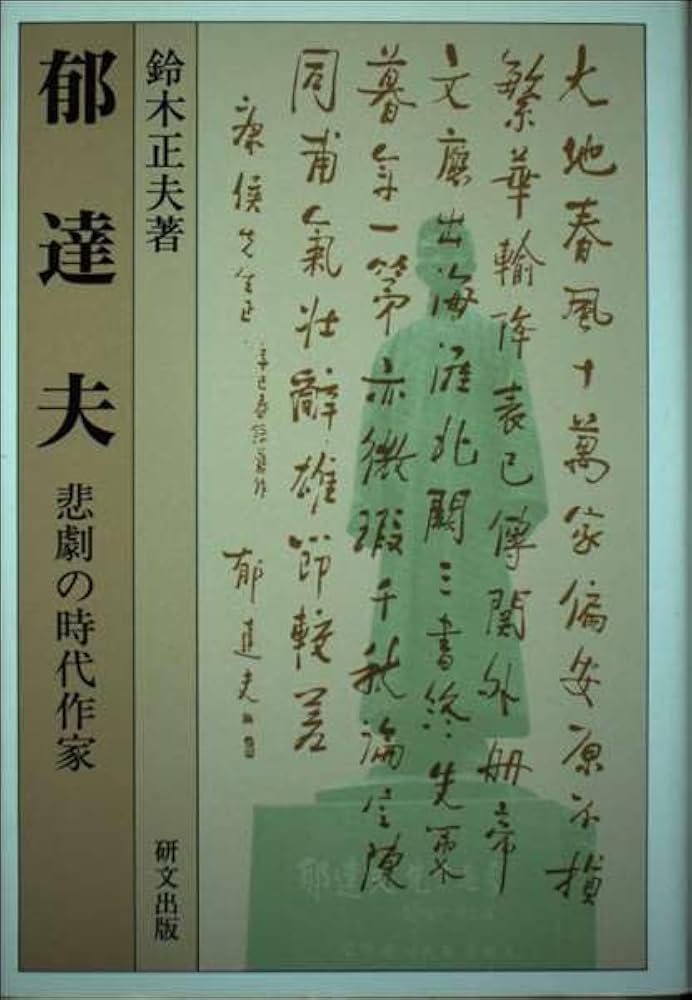 大地春風十萬家偏安原不損
繁華輸降表已傳関外冊帝
文應出海涯北闕三書終失策
暮年一第亦微瑕千秋論定陳
同甫氣壯辭雄節較差
康侯先生正
辛巳春録舊作
郁達夫
鈴木正夫著
研文出版
郁達夫
悲劇の時代作家